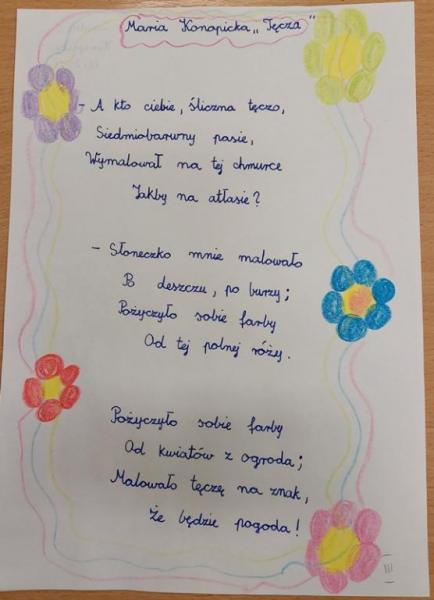 Maria Konopnicka „Tęcza"
- A kto ciebie, śliczna tęczo,
Siedmiobarwny pasie,
Wymalował na tej chmurce
Jakby na atłasie?
- Słoneczko mnie malowało
Po deszczu, po burzy;
Pożyczyło sobie farby
Od tej polnej róży.
Pożyczyło sobie farby
Od kwiatów z ogroda;
Malowało tęczę na znak,
Że będzie pogoda!
III